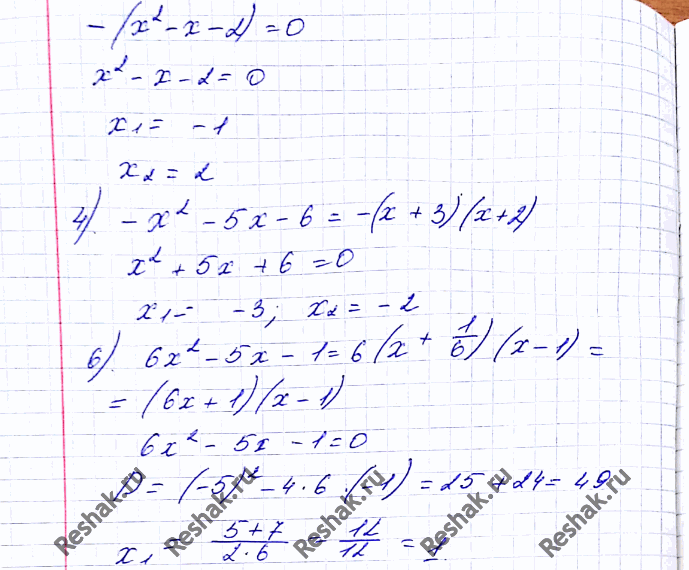 -(x² - x - 2) = 0
x² - x - 2 = 0
x₁ = -1
x₂ = 2
4). -x² - 5x - 6 = -(x + 3)(x + 2)
x² + 5x + 6 = 0
x₁ = -3; x₂ = -2
6). 6x² - 5x - 1 = 6(x + 1/6)(x - 1) =
= (6x + 1)(x - 1)
6x² - 5x - 1 = 0
D = (-5)² - 4·6·(-1) = 25 + 24 = 49
x₁ = (5+7)/(2·6) = 12/12 = 1
Reshak.ru Reshak.ru Reshak.ru Reshak.ru Reshak.ru